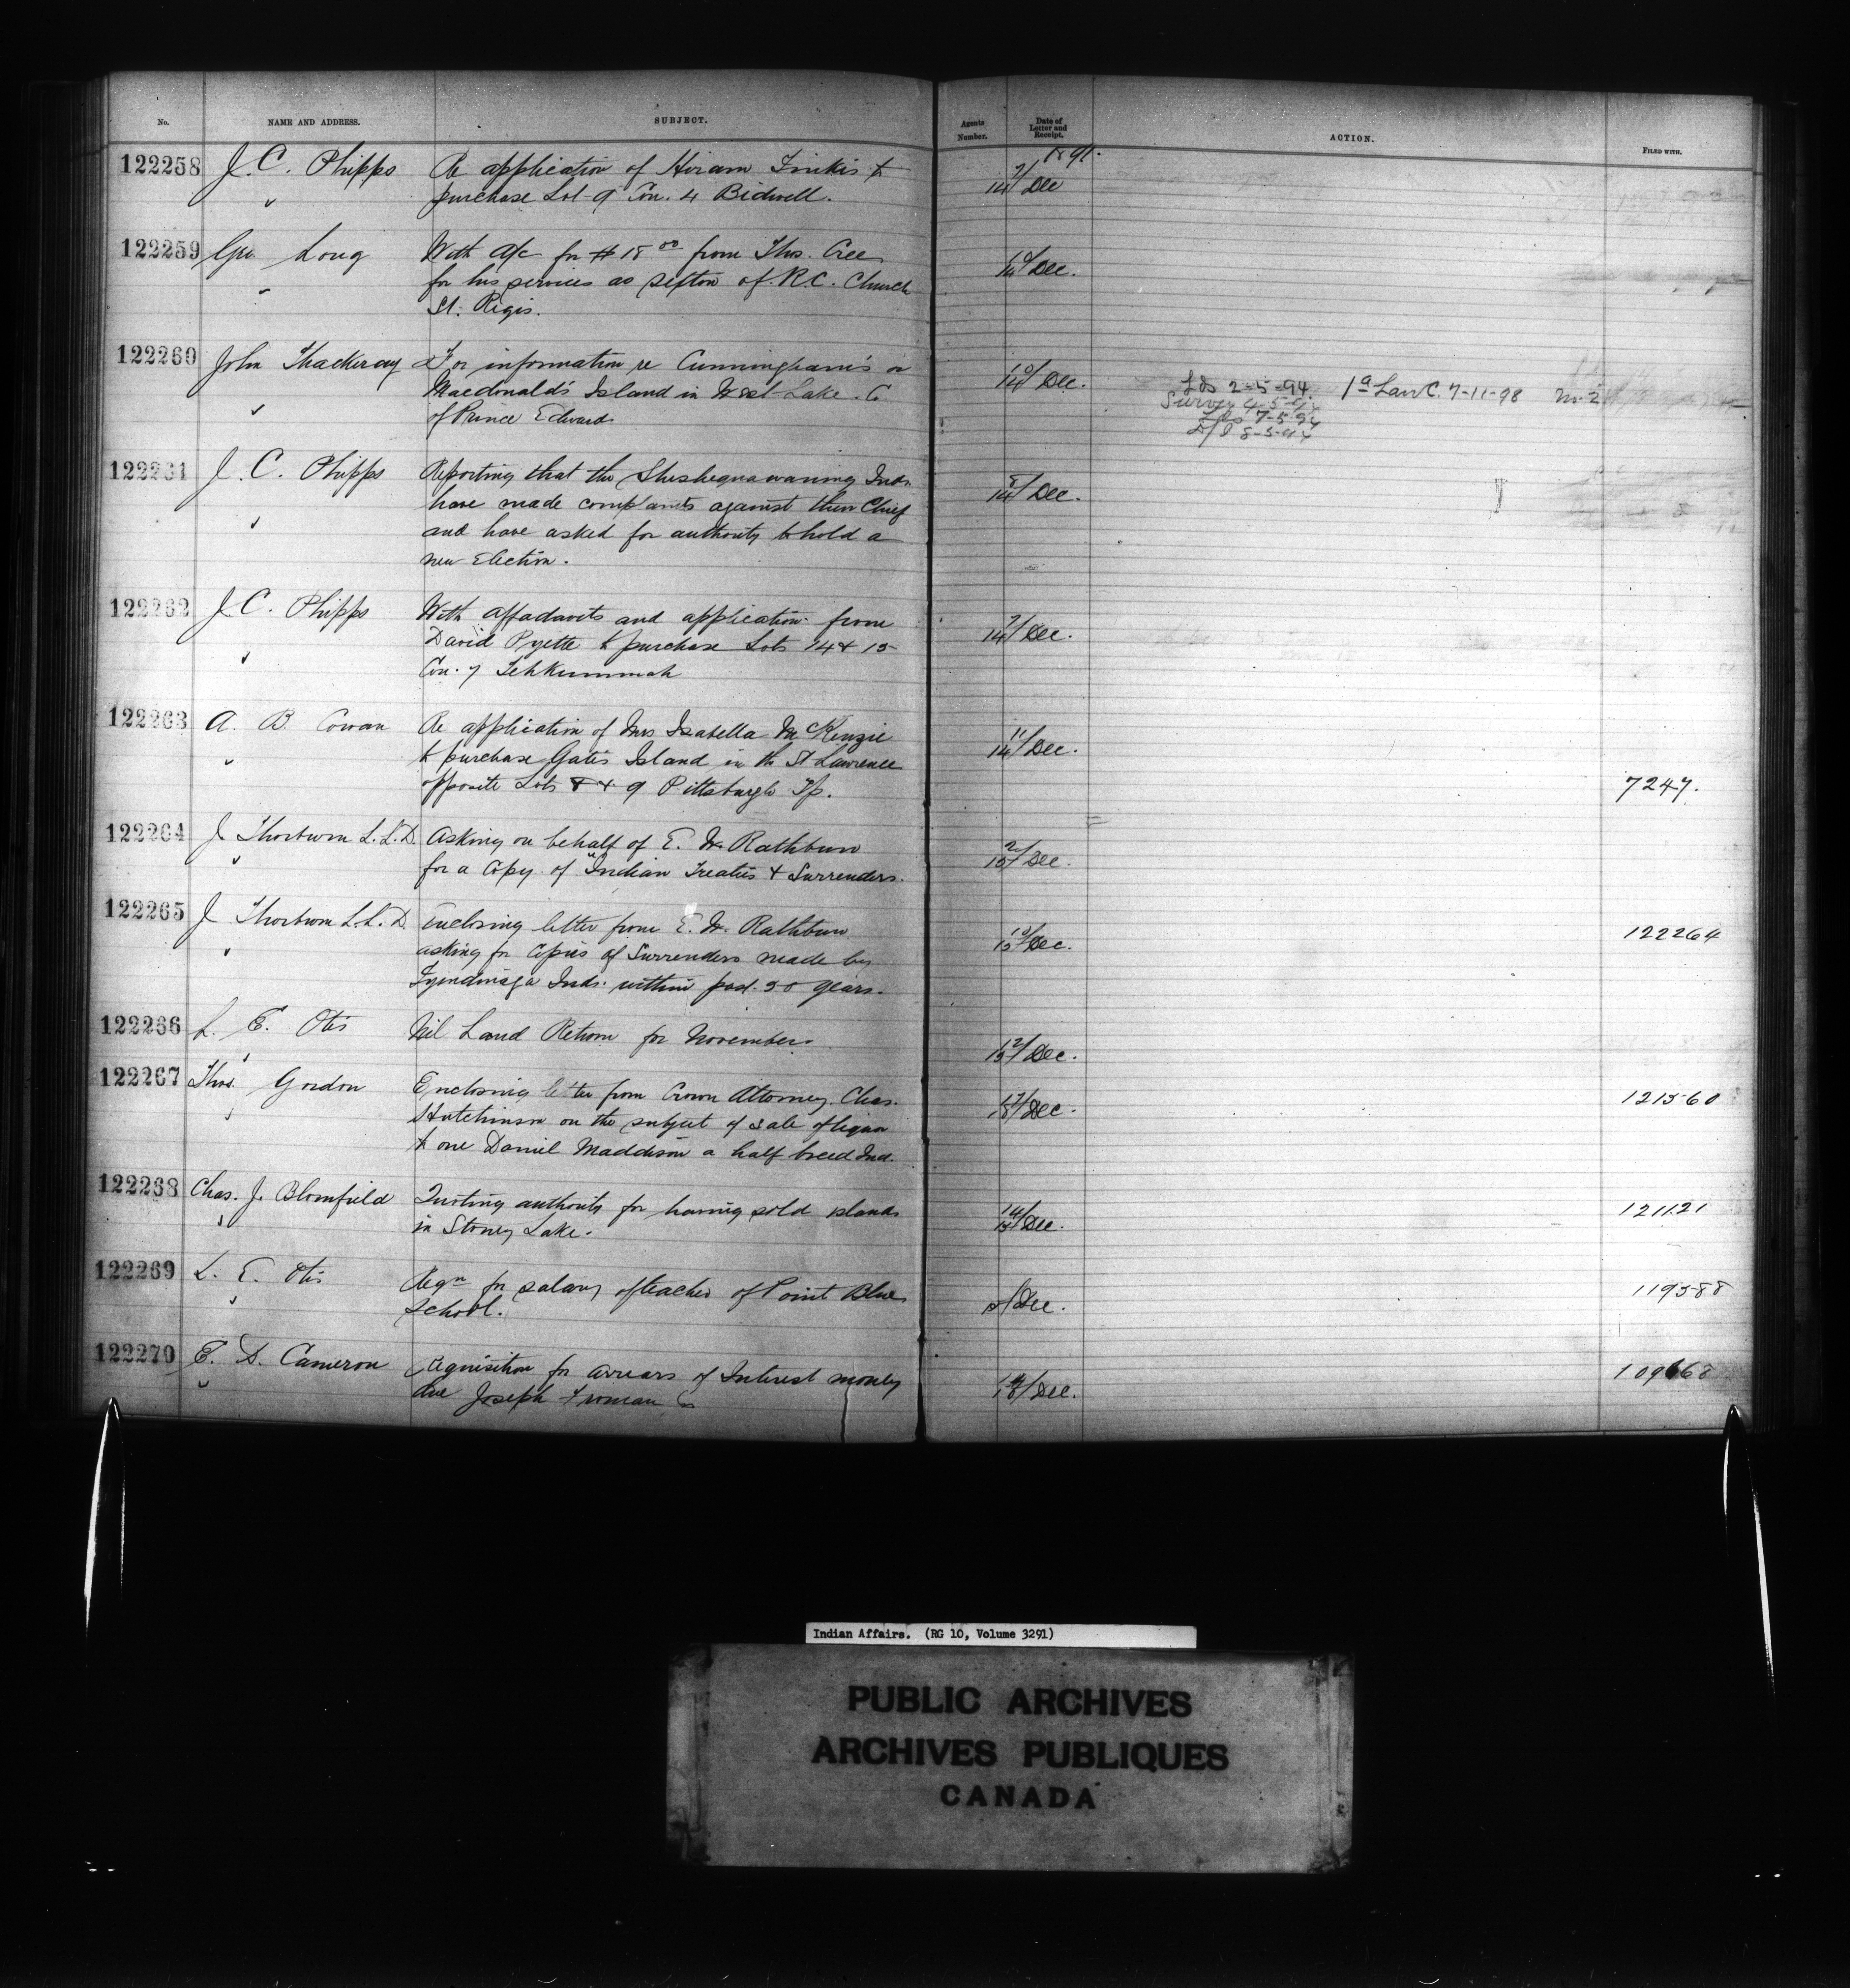 No. NAME AND ADDRESS. SUBJECT. Agents Number. Date of Letter and Receipt. ACTION. FILED WITH.
1891.
122258 J. C. Phipps Re application of Hiram Finkis to 9/14 Dec
purchase Lot 9 Con. 4 Bidwell.
122259 Geo Long With a/c for $18 00 from Thos. Cree 10/14 Dec.
for his services as sexton of R.C. Church
St. Regis.
122260 John Thackeray For information re Cunningham's or 10/14 Dec.
Macdonald's Island in West Lake. Co
of Prince Edward
Lds 2-5-94. 1a Law C. 7-11-98 m-2
Survey 4-5-94
Lds 7-5-94
D/I 8-5-94
122261 J. C. Phipps Reporting that the Sheshegwaning Inds. 8/14 Dec.
have made complaints against their Chief
and have asked for authority to hold a
new Election.
122262 J C. Phipps With affadavits and application from 9/14 Dec.
David Pyette to purchase Lots 14 & 15
Con. 7 Tehkummah
122263 A. B. Cowan Re application of Mrs Isabella McKenzie 11/14 Dec.
to purchase Gates Island in the St Lawrence
opposite Lots 8 & 9 Pittsburgh Tp. 7247.
122264 J Thorburn L.L.D. Asking on behalf of E. W. Rathbun 2/15 Dec.
for a copy of "Indian Treaties & Surrenders.
122265 J Thorburn L.L.D. Enclosing letter from E. W. Rathbun 10/15 Dec. 122264
asking for copies of Surrenders made by
Tyendinaga Inds. within past 50 years.
122266 L. E. Otis Nil Land Return for November. 12/15 Dec.
122267 Thos. Gordon Enclosing letter from Crown Attorney Chas. Dec. 121560
Hutchinson on the subject of sale of liquor
to one Daniel Maddison a half breed Ind.
122268 Chas. J. Blomfield Quoting authority for having sold islands 14/15 Dec. 121121
in Stoney Lake.
122269 L. E. Otis Reqn for salary of teacher of Point Blue Dec. 119588
School.
122270 E. D. Cameron Requisition for arrears of Interest money 14/15 Dec. 109668
due Joseph Froman
Indian Affairs. (RG 10, Volume 3291)
PUBLIC ARCHIVES
ARCHIVES PUBLIQUES
CANADA